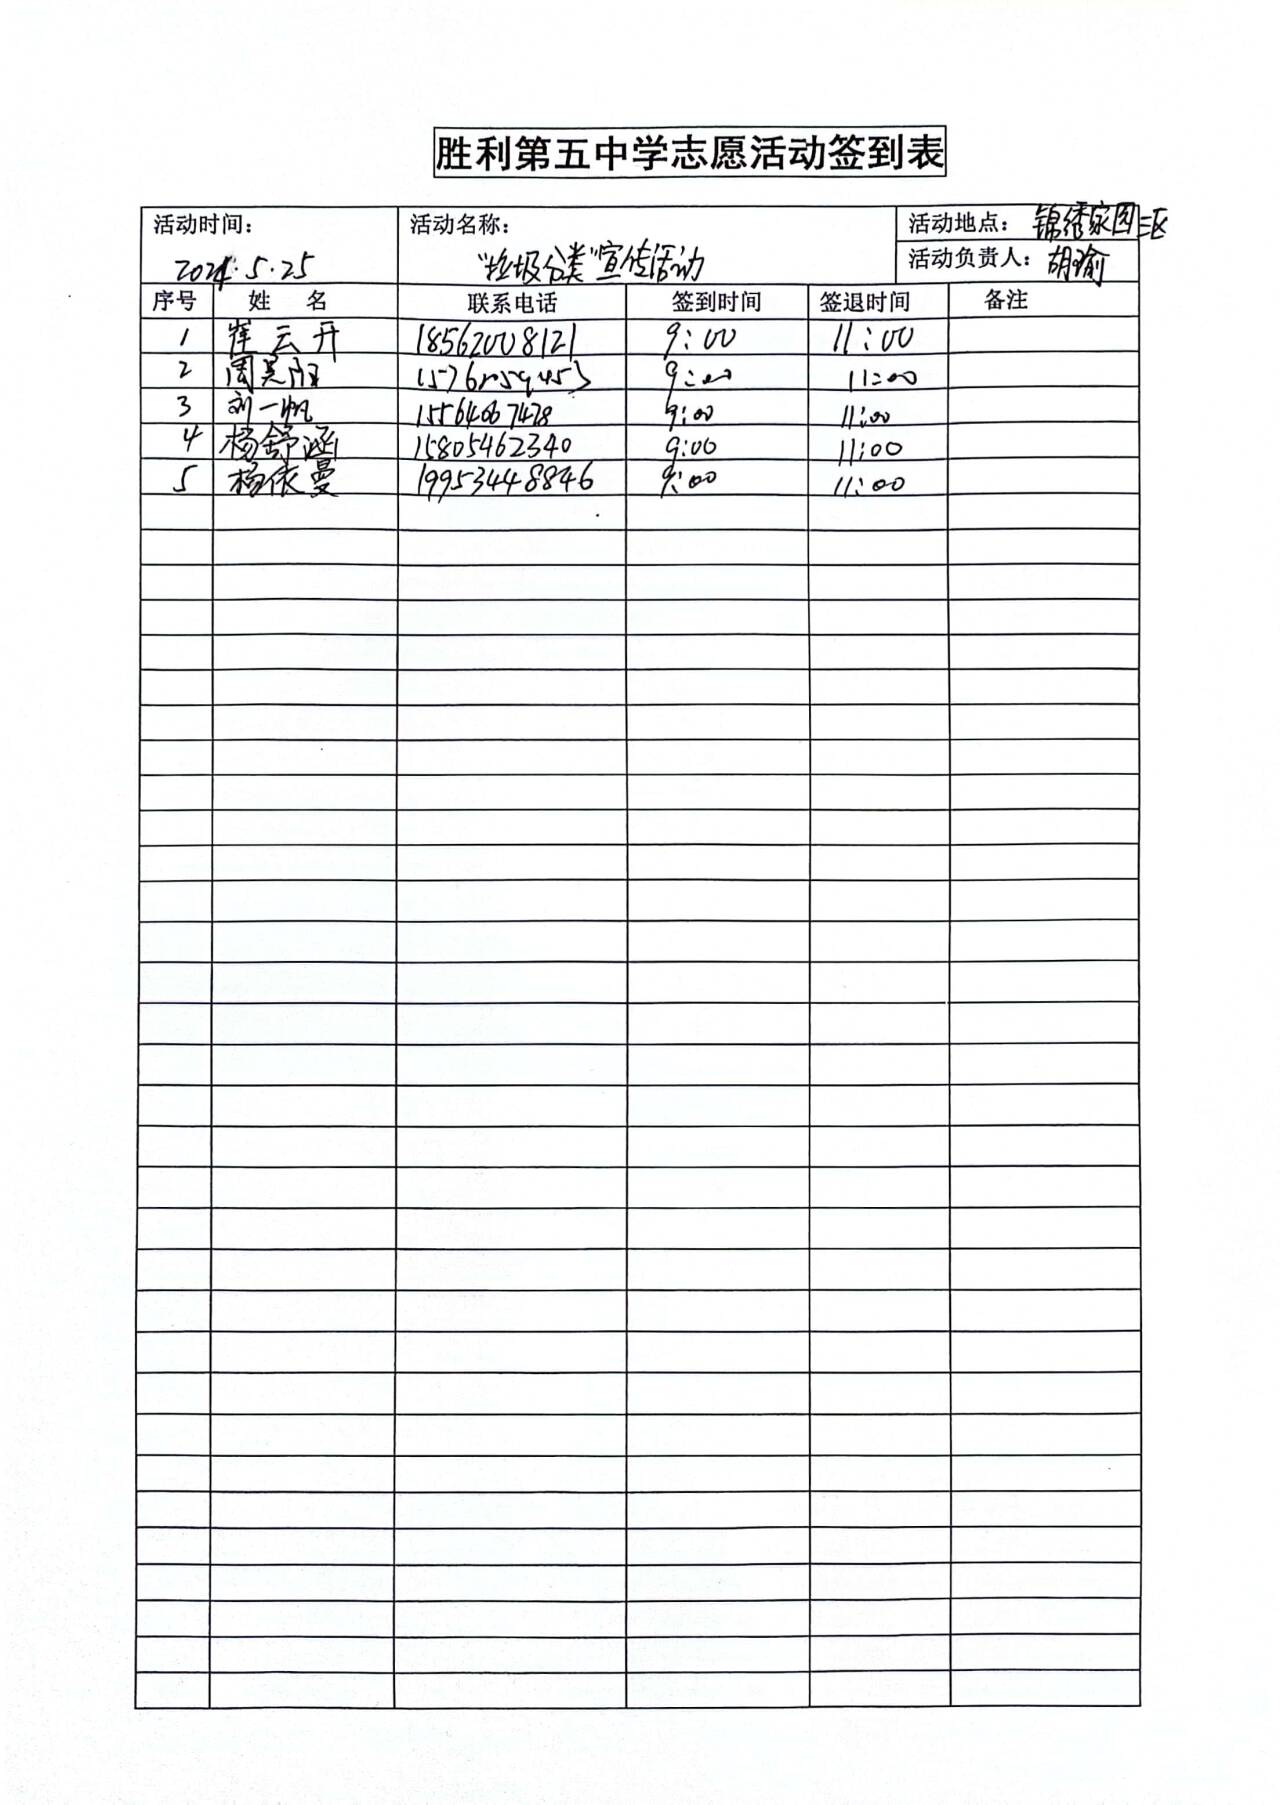 胜利第五中学志愿活动签到表
活动时间： 活动名称： 活动地点： 锦绣家园三区
2024.5.25 “垃圾分类”宣传活动 活动负责人： 胡瑜
序号 姓 名 联系电话 签到时间 签退时间 备注
1 崔云开 18562008121 9:00 11:00
2 周昊阳 9:00 11:00
3 刘一帆 15564067478 9:00 11:00
4 杨舒涵 15805462340 9:00 11:00
5 杨依曼 19953448846 9:00 11:00